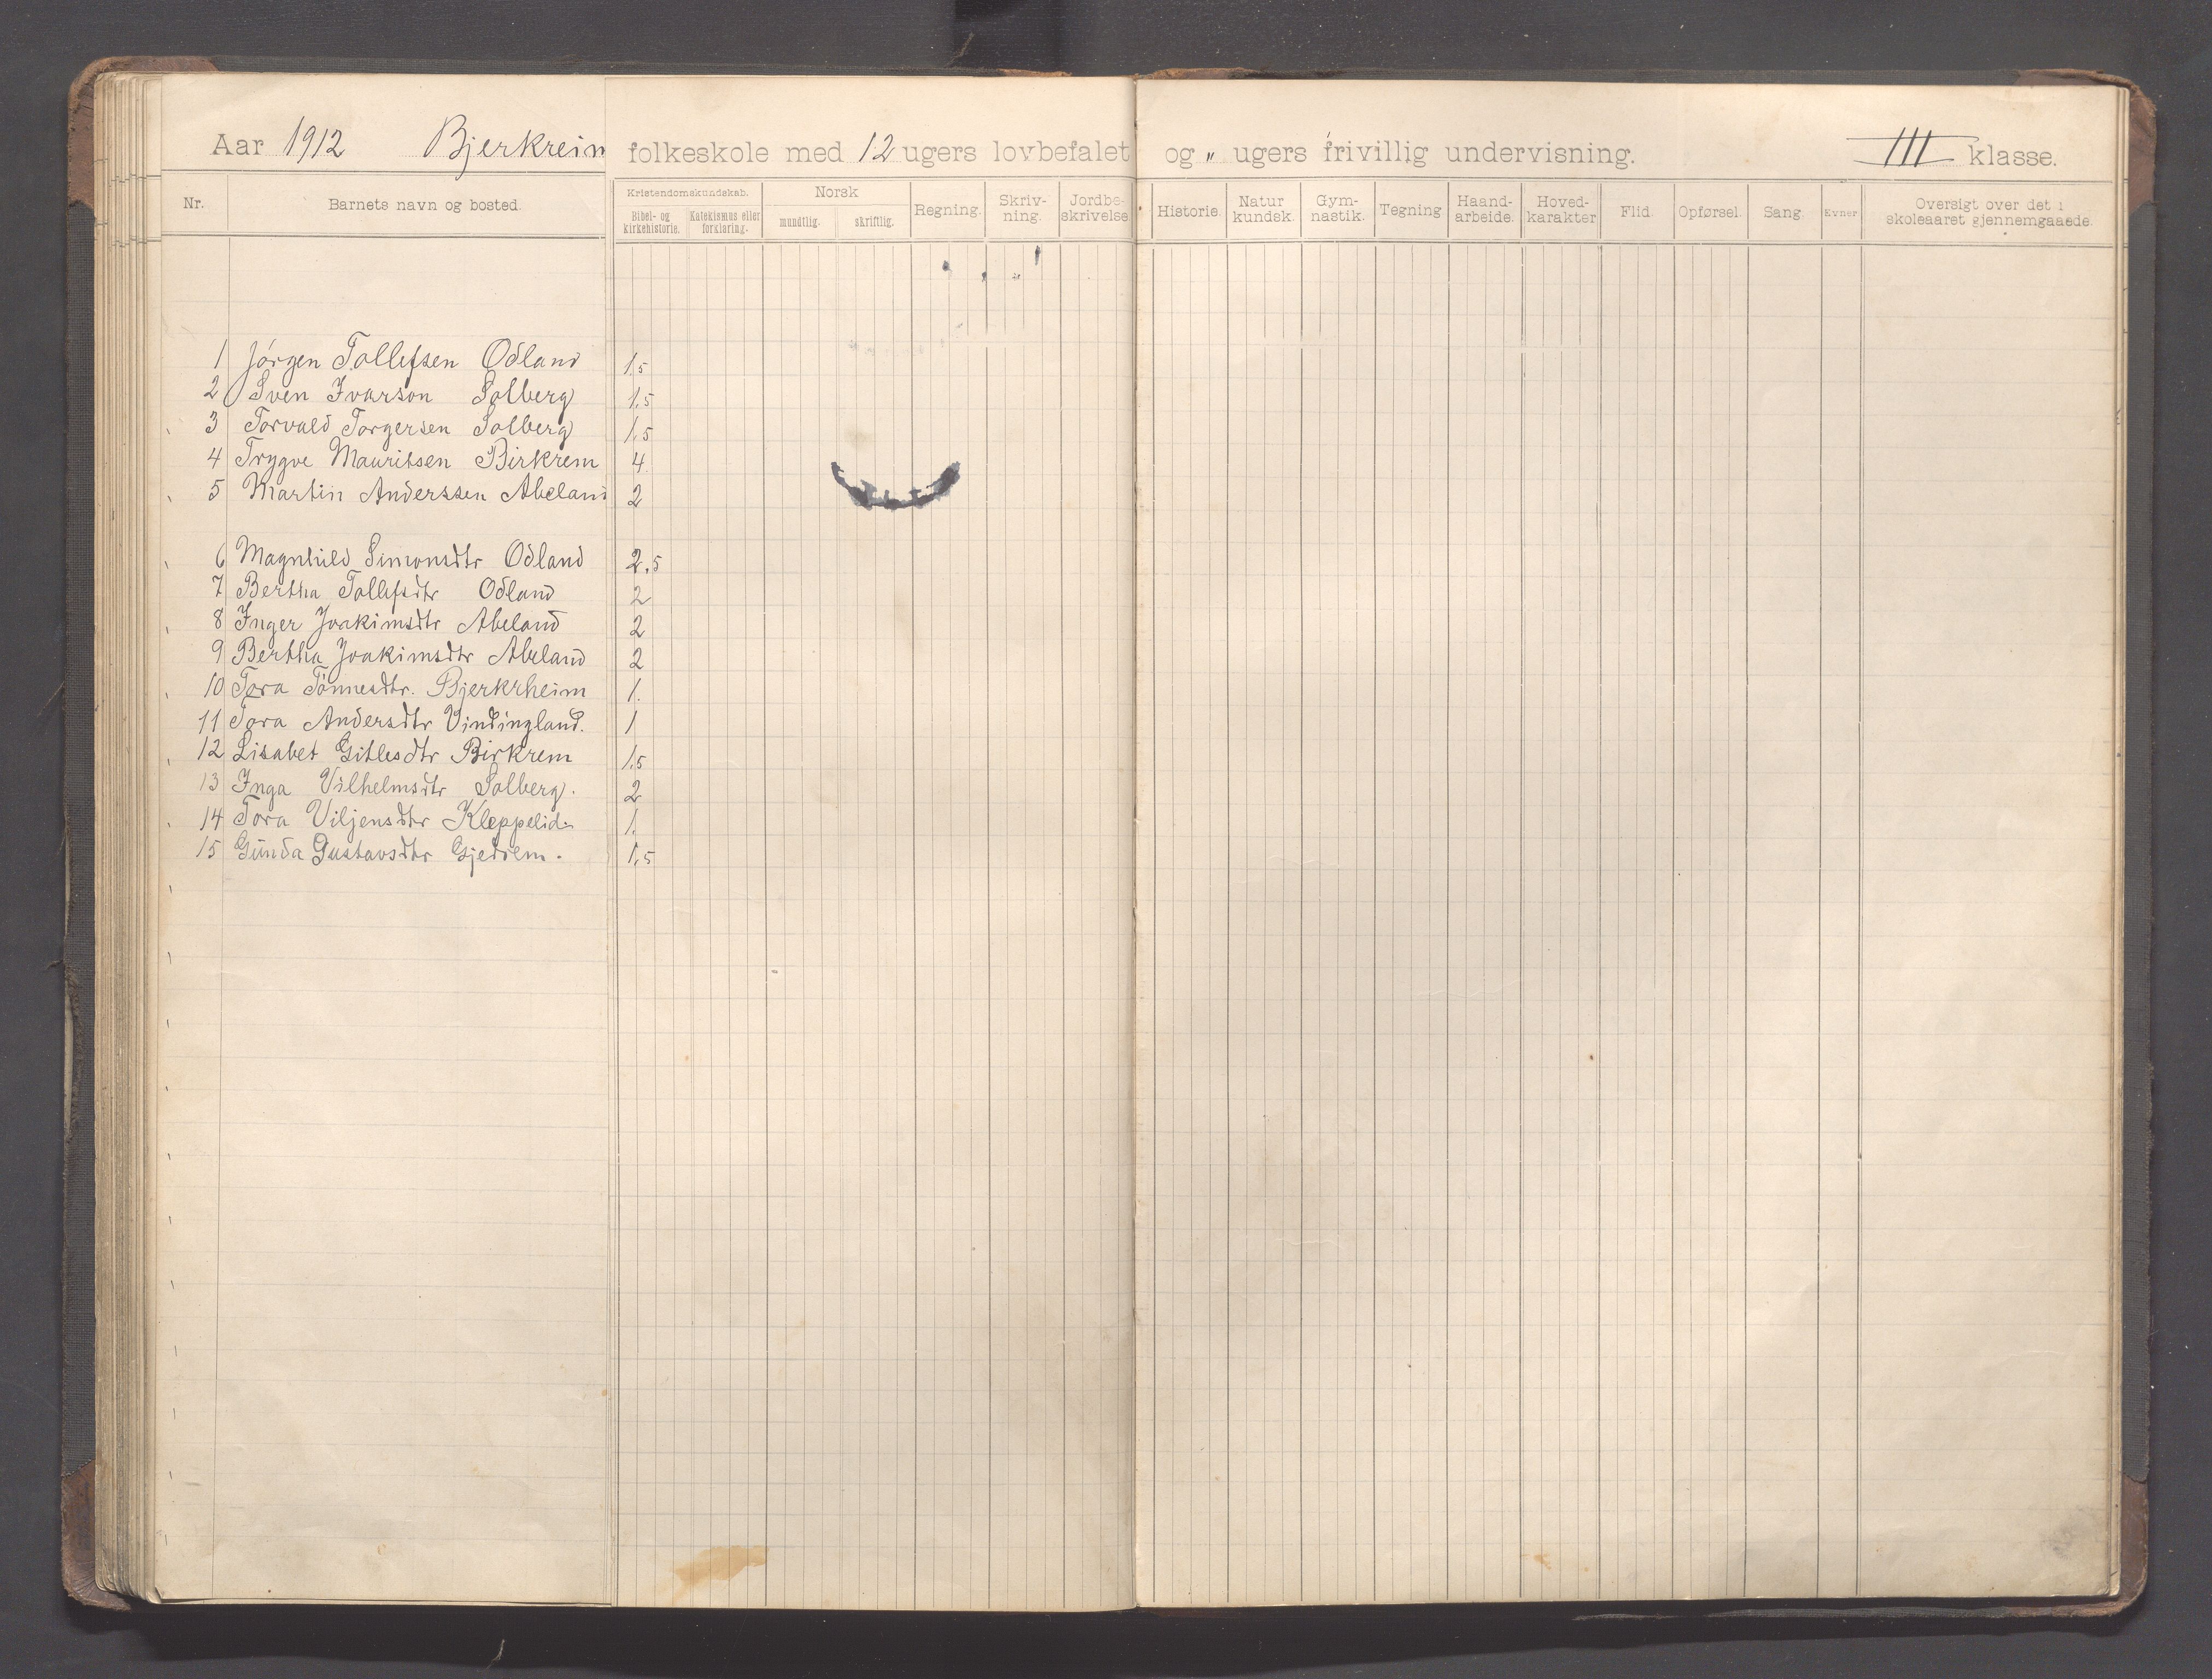 Aar 1912 Bjerkreim folkeskole med 12 ugers lovbefalet og " ugers frivillig undervisning. III klasse.
Nr. Barnets navn og bosted. Kristendomskundskab. Bibel- og kirkehistorie. Katekismus eller forklaring. Norsk mundtlig. skriftlig. Regning. Skriv-ning. Jordbe-skrivelse Historie. Natur kundsk. Gym-nastik. Tegning Haand-arbeide. Hoved-karakter Flid. Opførsel. Sang. Evner. Oversigt over det i skoleaaret gjennemgaaede.
1 Jørgen Tollefsen Odland 1,5
2 Sven Ivarson Solberg 1,5
3 Torvald Torgersen Solberg 1,5
4 Trygve Mauritsen Birkrem 4.
5 Martin Anderssen Abeland 2
6 Magnhild Simonsdtr Odland 2,5
7 Bertha Tollefsdtr Odland 2
8 Inger Joakimsdtr Abeland 2
9 Bertha Joakimsdtr Abeland 2
10 Tora Tönnesdtr. Bjerkrheim 1.
11 Tora Andersdtr Vindingland. 1
12 Lisabet Gitlesdtr Birkrem 1,5
13 Inga Vilhelmsdtr Solberg. 2
14 Tora Viljensdtr Kleppelid. 1.
15 Gunda Gustavsdtr Gjedrem. 1,5